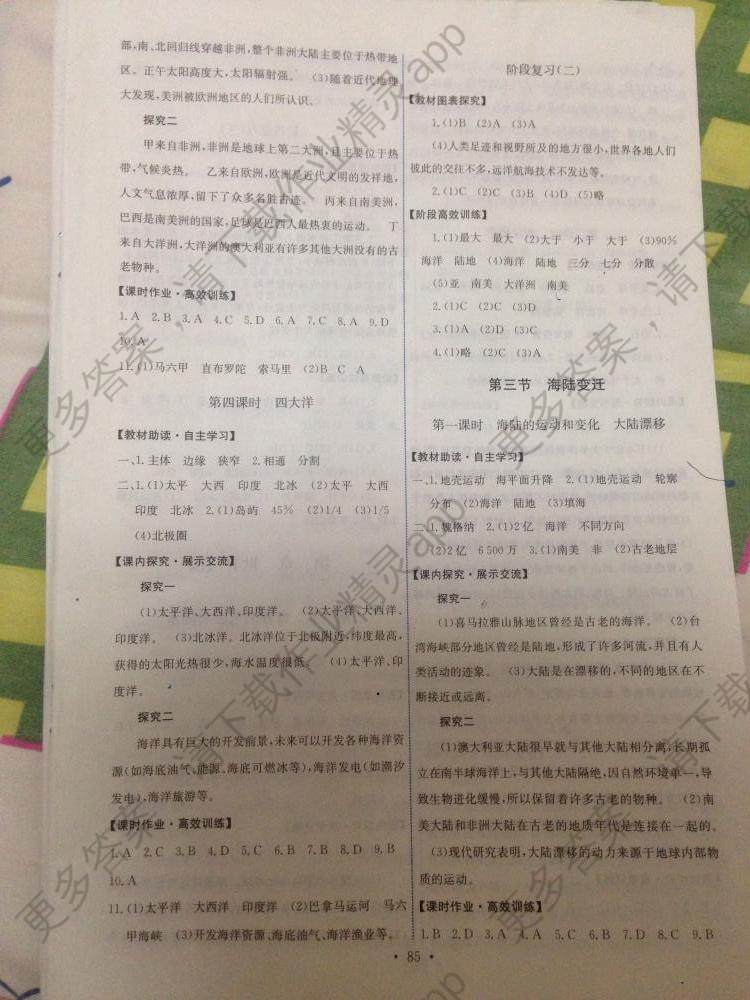 部,南、北回归线穿越非洲,整个非洲大陆主要位于热带地
区。正午太阳高度大,太阳辐射强。 (3)随着近代地理
大发现,美洲被欧洲地区的人们所认识。
探究二
甲来自非洲,非洲是地球上第二大洲,且主要位于热
带,气候炎热。 乙来自欧洲,欧洲是近代文明的发祥地,
人文气息浓厚,留下了众多名胜古迹。 丙来自南美洲,
巴西是南美洲的国家,足球是巴西人最热衷的运动。 丁
来自大洋洲,大洋洲的澳大利亚有许多其他大洲没有的古
老物种。
【课时作业·高效训练】
1.A 2.B 3.A 4.C 5.D 6.A 7.C 8.A 9.D
10.A
11.(1)马六甲 直布罗陀 索马里 (2)B C A
第四课时 四大洋
【教材助读·自主学习】
一、1.主体 边缘 狭窄 2.相通 分割
二、1.(1)太平 大西 印度 北冰 (2)太平 大西
印度 北冰 2.(1)岛屿 45% (2)1/4 (3)1/5
(4)北极圈
【课内探究·展示交流】
探究一
(1)太平洋、大西洋、印度洋。 (2)太平洋、大西洋、
印度洋。 (3)北冰洋。北冰洋位于北极附近,纬度最高,
获得的太阳光热很少,海水温度很低。 (4)太平洋、印
度洋。
探究二
海洋具有巨大的开发前景,未来可以开发各种海洋资
源(如海底油气、能源、海底可燃冰等),海洋发电(如潮汐
发电),海洋旅游等。
【课时作业·高效训练】
1.A 2.C 3.B 4.D 5.C 6.B 7.C 8.D 9.B
10.A
11.(1)太平洋 大西洋 印度洋 (2)巴拿马运河 马六
甲海峡 (3)开发海洋资源、海底油气、海洋渔业等。
阶段复习(二)
【教材图表探究】
1.(1)B (2)A (3)A
(4)人类足迹和视野所及的地方很小,世界各地人们
彼此的交往不多,远洋航海技术不发达等。
2.(1)C (2)C (3)B (4)D (5)略
【阶段高效训练】
1.(1)最大 最大 (2)大于 小于 大于 (3)90%
海洋 陆地 (4)海洋 陆地 三分 七分 分散
(5)亚 南美 大洋洲 南美
2.(1)C (2)C (3)D
3.(1)A (2)D (3)C
4.(1)略 (2)C (3)A
第三节 海陆变迁
第一课时 海陆的运动和变化 大陆漂移
【教材助读·自主学习】
一、1.地壳运动 海平面升降 2.(1)地壳运动 轮廓
分布 (2)海洋 陆地 (3)填海
二、1.魏格纳 2.(1)2亿 海洋 不同方向
(2)2亿 6 500万 3.(1)南美 非 (2)古老地层
【课内探究·展示交流】
探究一
(1)喜马拉雅山脉地区曾经是古老的海洋。 (2)台
湾海峡部分地区曾经是陆地,形成了许多河流,并且有人
类活动的迹象。 (3)大陆是在漂移的,不同的地区在不
断接近或远离。
探究二
(1)澳大利亚大陆很早就与其他大陆相分离,长期孤
立在南半球海洋上,与其他大陆隔绝,因自然环境单一,导
致生物进化缓慢,所以保留着许多古老的物种。 (2)南
美大陆和非洲大陆在古老的地质年代是连接在一起的。
(3)现代研究表明,大陆漂移的动力来源于地球内部物
质的运动。
【课时作业·高效训练】
1.B 2.B 3.A 4.D 5.A 6.D 7.B 8.C 9.B
·85·
更多答案,请下载作业精灵app
更多答案,请下载作业精灵app
更多答案,请下载